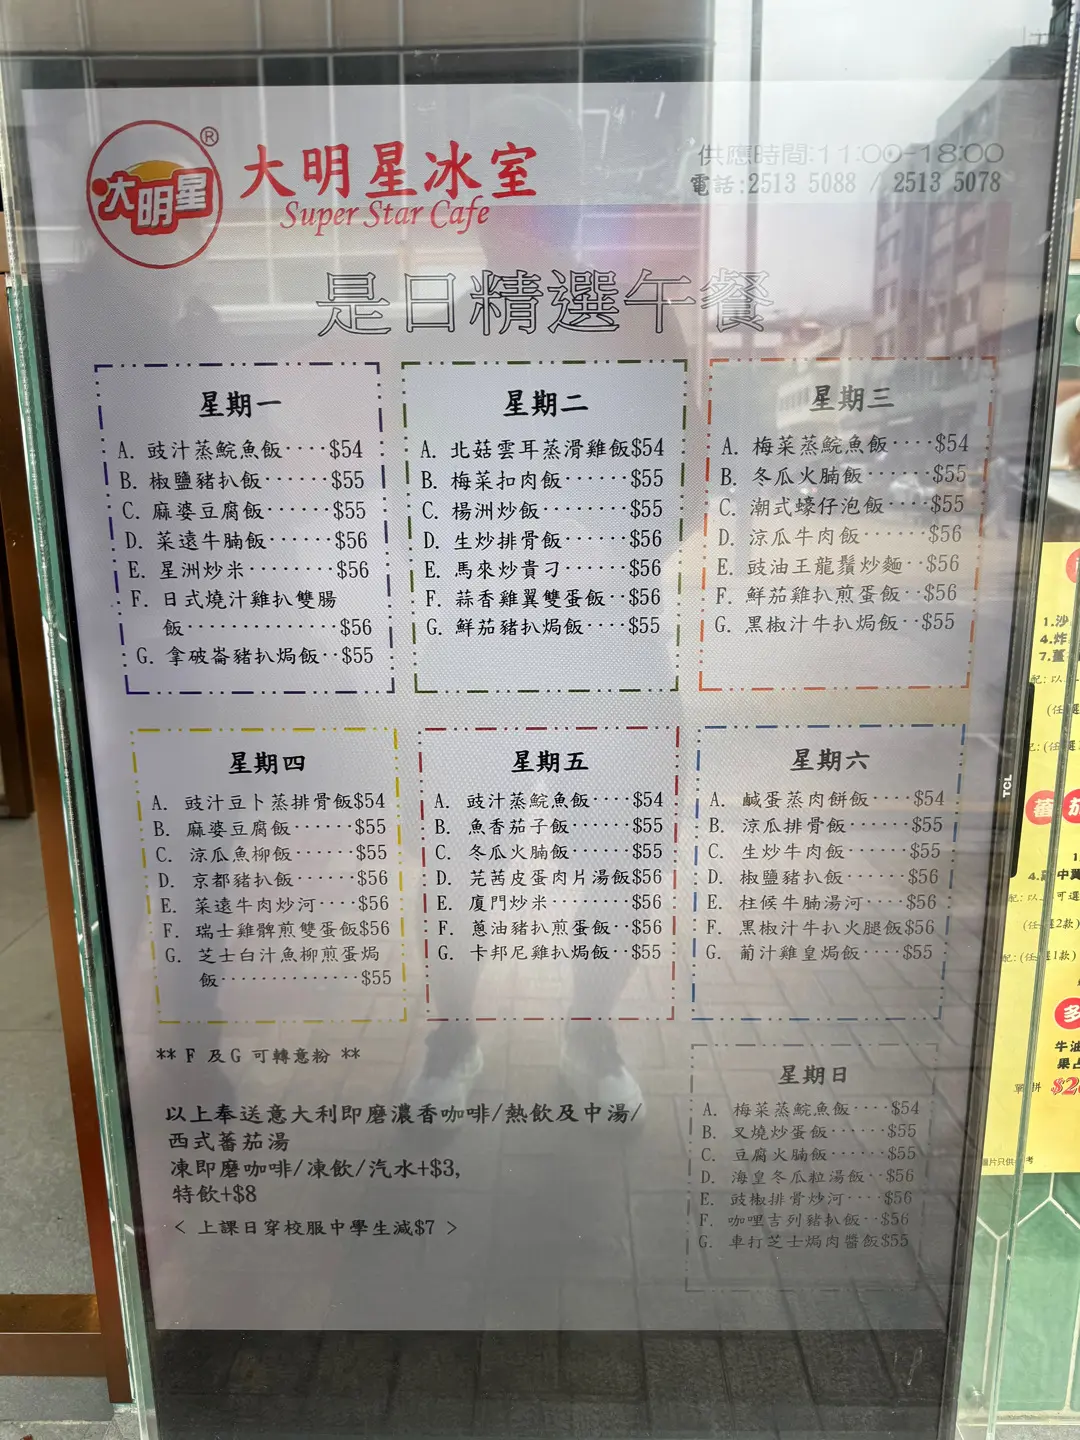 大明星
®
大明星冰室
Super Star Cafe
供應時間:11:00-18:00
電話:2513 5088 / 2513 5078
是日精選午餐
星期一
A. 豉汁蒸鯇魚飯····$54
B. 椒鹽豬扒飯······$55
C. 麻婆豆腐飯······$55
D. 菜遠牛腩飯······$56
E. 星洲炒米········$56
F. 日式燒汁雞扒雙腸
飯··············$56
G. 拿破崙豬扒焗飯··$55
星期二
A. 北菇雲耳蒸滑雞飯$54
B. 梅菜扣肉飯······$55
C. 楊洲炒飯········$55
D. 生炒排骨飯······$56
E. 馬來炒貴刁······$56
F. 蒜香雞翼雙蛋飯··$56
G. 鮮茄豬扒焗飯····$55
星期三
A. 梅菜蒸鯇魚飯····$54
B. 冬瓜火腩飯······$55
C. 潮式蠔仔泡飯····$55
D. 涼瓜牛肉飯······$56
E. 豉油王龍鬚炒麵··$56
F. 鮮茄雞扒煎蛋飯··$56
G. 黑椒汁牛扒焗飯··$55
星期四
A. 豉汁豆卜蒸排骨飯$54
B. 麻婆豆腐飯······$55
C. 涼瓜魚柳飯······$55
D. 京都豬扒飯······$56
E. 菜遠牛肉炒河····$56
F. 瑞士雞髀煎雙蛋飯$56
G. 芝士白汁魚柳煎蛋焗
飯··············$55
星期五
A. 豉汁蒸鯇魚飯····$54
B. 魚香茄子飯······$55
C. 冬瓜火腩飯······$55
D. 芫茜皮蛋肉片湯飯$56
E. 廈門炒米········$56
F. 蔥油豬扒煎蛋飯··$56
G. 卡邦尼雞扒焗飯··$55
星期六
A. 鹹蛋蒸肉餅飯····$54
B. 涼瓜排骨飯······$55
C. 生炒牛肉飯······$55
D. 椒鹽豬扒飯······$56
E. 柱候牛腩湯河····$56
F. 黑椒汁牛扒火腿飯$56
G. 葡汁雞皇焗飯····$55
** F 及G 可轉意粉 **
以上奉送意大利即磨濃香咖啡/熱飲及中湯/
西式蕃茄湯
凍即磨咖啡/凍飲/汽水+$3,
特飲+$8
< 上課日穿校服中學生減$7 >
星期日
A. 梅菜蒸鯇魚飯····$54
B. 叉燒炒蛋飯······$55
C. 豆腐火腩飯······$55
D. 海皇冬瓜粒湯飯··$56
E. 豉椒排骨炒河····$56
F. 咖哩吉列豬扒飯··$56
G. 車打芝士焗肉醬飯$55
TCL
1.沙
4.炸
7.薑
多
牛油